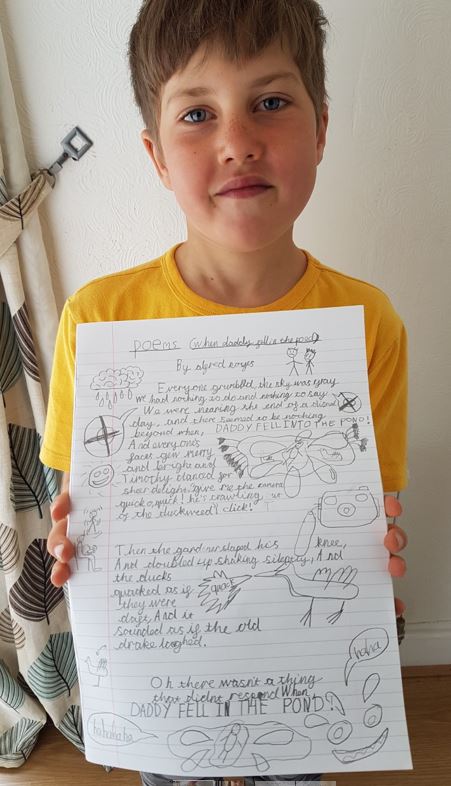 poems (when daddy fell in the pond)
By alfred noyes
Everyone grumbld, the sky was gray
We had nothing to do and nothing to say
We were nearing the end of a dismal
day, and there seemed to be nothing
beyond when,
DADDY FELL INTO THE POND!
And everyone's
faces grew merry
and bright and
Timothy danced for
sheer delight. "give me the camra
quick o, quick! he's crawling out
of the duckweed"! click!
Then the gardner slaped his knee,
And doubled up shaking silently, And
the ducks
quacked as if
they were
daft, And it
sounded as if the old
drake laghed.
quack
Oh there wasn't a thing
that didnt respond When
DADDY FELL IN THE POND!
haha
hahahaha